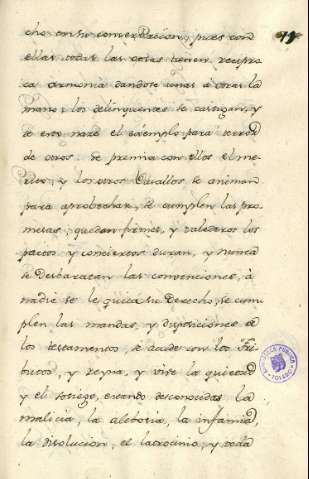 cho en su conservacion, pues con
ellas todas las cosas tienen recipro
ca armonia dandose unas à otras la
mano: los delinquentes se castigan, y
de esto nace el exemplo para terror
de otros. se premia con ellos el me-
rito, y los otros Cavallos se animan
para aprobechar, se cumplen las pro
mesas, quedan firmes, y valederos los
pactos y conciertos duran, y nunca
se Desbaratan las convenciones, à
nadie se le quita su Derecho, se cum
plen las mandas, y disposiciones de
los testamentos, se acude con los Tri-
butos, y reyna, y vive la quietud
y el sosiego, estando desconocidas la
malicia, la alevosia, la infamia,
la disolucion, el latrocinio, y toda